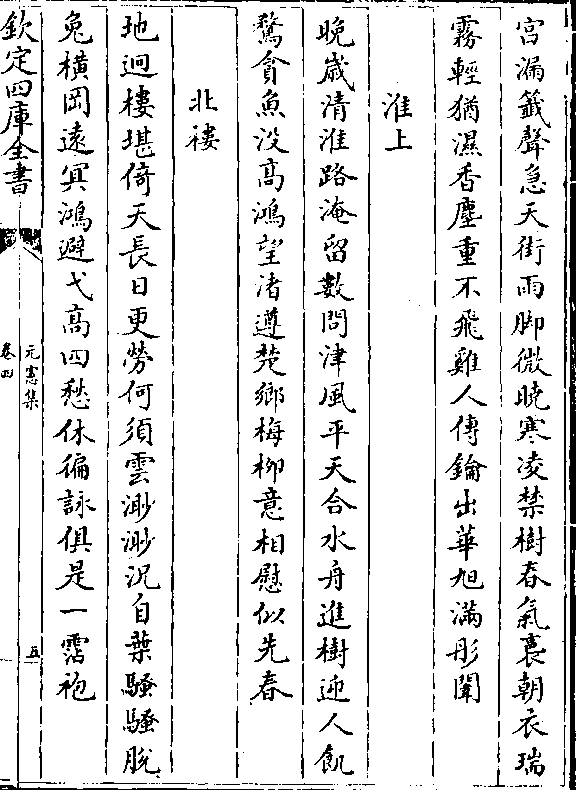 宫漏籖聲急天街雨脚微曉寒凌禁樹春氣裛朝衣瑞
霧輕猶濕香塵重不飛雞人傳鑰出華旭滿彤闈
淮上
晩歳清淮路淹留數問津風平天合水舟進樹迎人飢
鶩貪魚没高鴻望渚遵楚鄉梅柳意相慰似先春
北樓
地迥樓堪倚天長日更勞何須雲渺渺況自葉騷騷脱
兔横岡遠冥鴻避弋高四愁休徧詠俱是一霑袍
欽定四庫全書
元憲集
卷四
五